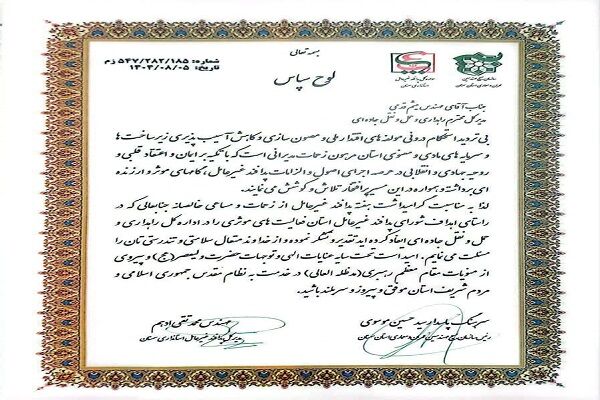 بسمه تعالی
شماره: ۵۴۷/۲۸۲/۱۸۵ زم
تاریخ: ۱۴۰۳/۰۸/۰۵
لوح سپاس
جناب آقای مهندس میثم قدمی
مدیرکل محترم راهداری و حمل و نقل جاده ای
بی تردید استحکام درونی مولفه های اقتدار ملی و مصون سازی و کاهش آسیب پذیری زیرساخت ها
و سرمایه های مادی و معنوی استان مرهون زحمات مدیرانی است که با تکیه بر ایمان و اعتقاد قلبی و
روحیه جهادی و انقلابی در عرصه اجرای اصول و الزامات پدافند غیرعامل، گامهای موثر و ارزنده
ای برداشته و همواره در این مسیر پرافتخار تلاش و کوشش می نمایند.
لذا به مناسبت گرامیداشت هفته پدافند غیرعامل از زحمات و مساعی خالصانه جنابعالی که در
راستای اهداف شورای پدافند غیرعامل استان فعالیت های موثری را در اداره کل راهداری و
حمل و نقل جاده ای ایفا کرده اید تقدیر و تشکر نموده و از خداوند متعال سلامتی و تندرستی تان را
مسئلت می نمایم. امید است تحت سایه عنایات الهی و توجهات حضرت ولیعصر(عج) و پیروی
از منویات مقام معظم رهبری(مدظله العالی) در خدمت به نظام مقدس جمهوری اسلامی و
مردم شریف استان موفق و پیروز و سربلند باشید.
سرهنگ پاسدار سید حسین موسوی
مهندس محمد تقی ادهم
مدیرکل پدافند غیرعامل استانداری سمنان